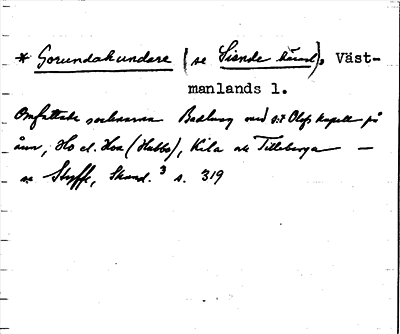 * Gorundakundare (se Siende härad), Väst-
manlands l.
Omfattade socknarna Badlung med s:t Olofs kapell på
ånn, Ho el. Hoa (Hubbo), Kila och Tilleberga —
se Styffe, Skand.³ s. 319